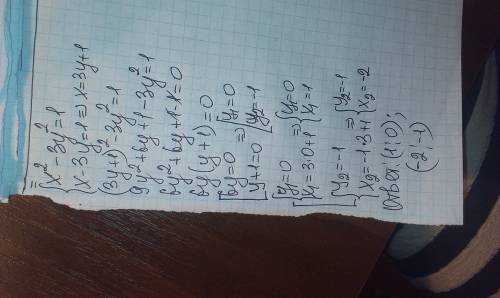 {x²-3y²=1
{x-3y=1 => x=3y+1
(3y+1)²-3y²=1
9y²+6y+1-3y²=1
6y²+6y+1-1=0
6y(y+1)=0
[6y=0 => [y₁=0
[y+1=0 [y₂=-1
[{y=0 => {y₁=0
{x₁=3·0+1 {x₁=1
{y₂=-1 => {y₂=-1
{x₂=-1·3+1 {x₂=-2
Ответ: (1;0);
(-2;-1)